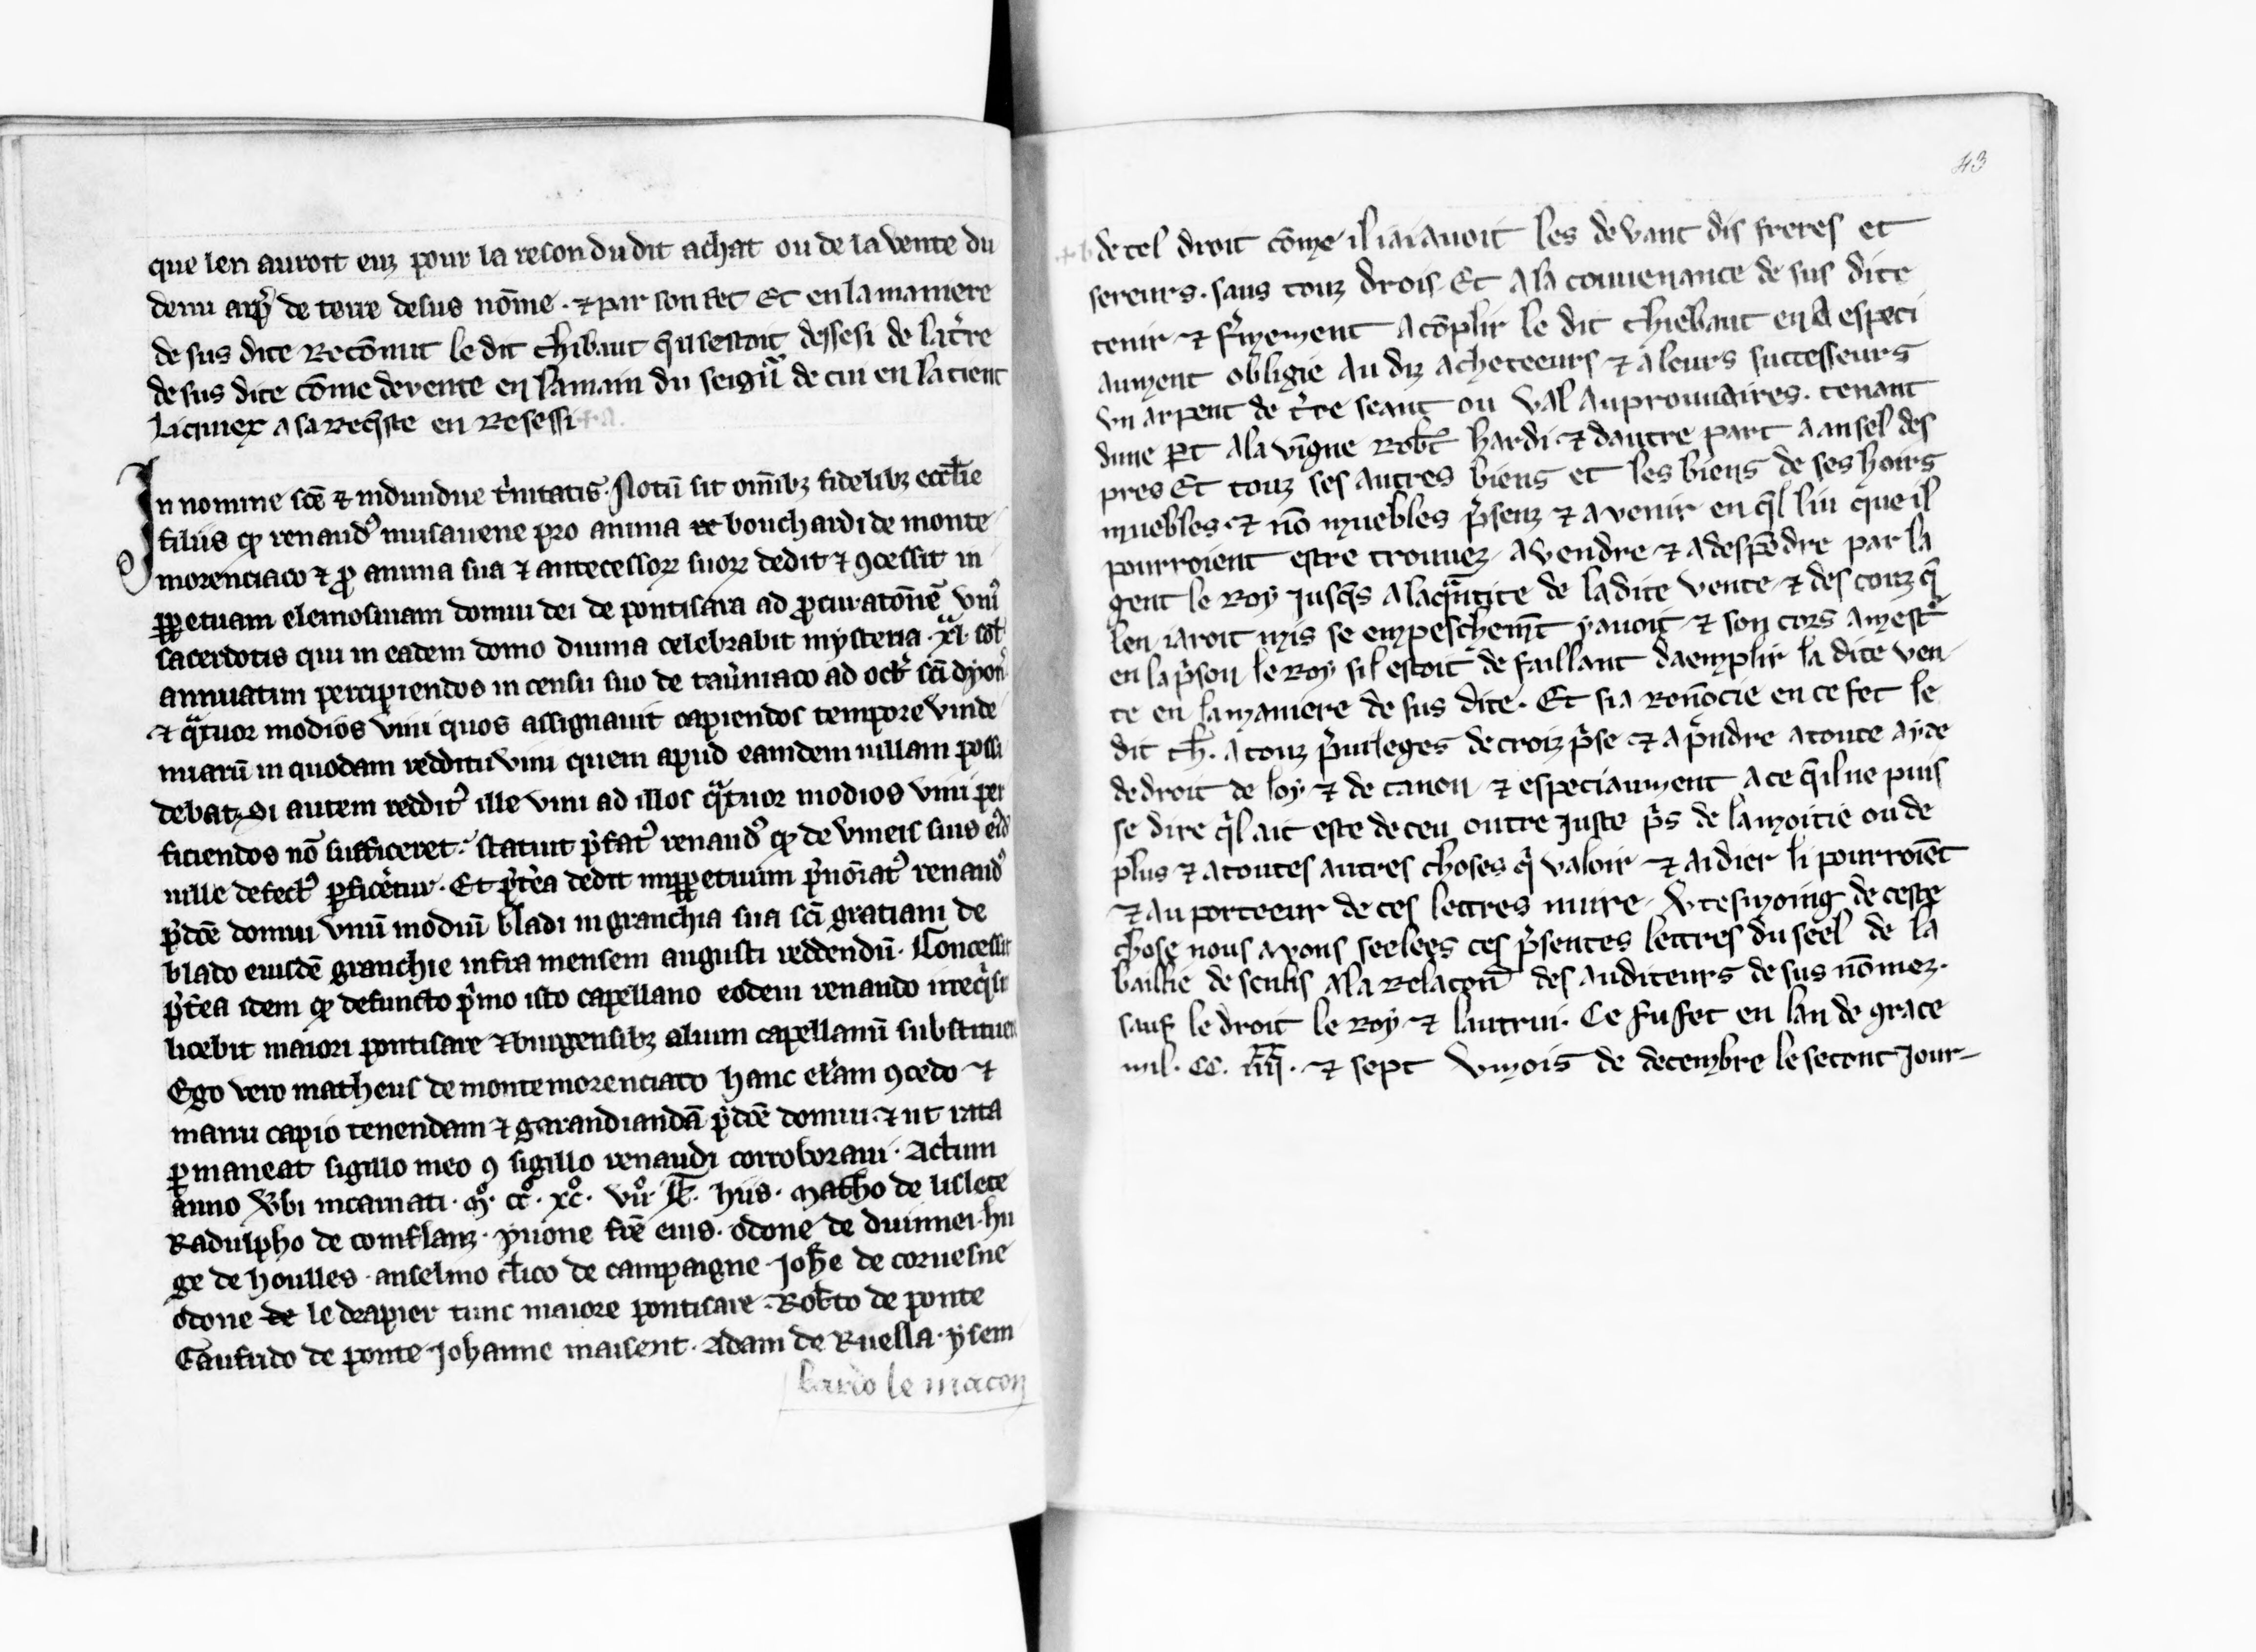 que len auroit euz pour la reson du dit achat ou de la vente du
demi arp̃ de terre desus nõme · ⁊ par son fet Et en la maniere
de sus dite Recõnut le dit thibaut q̃il sestoit dessesi de la t̃re
de sus dite cõme de vente en la main du seigñ de cui en la tient
Liqniex a sa Req̃ste en Resessi
In nomine scẽ ⁊ indiuidue t̾nitatis · Notũ sit om̃ibꝫ fidelibꝫ eccl̃ie
filiis ꝙ renaudꝰ musauene pro anima bouchardi de monte
morenciaco ⁊ ꝓ anima sua ⁊ antecessoꝝ suoꝝ dedit ⁊ ꝯcessit in
ꝑpetuam elemosinam domui dei de pontisara ad ꝓcuratõnẽ vniꝰ
sacerdotis qui in eadem domo diuina celebrabit mysteria · xl. sol̃
annuatim percipiendos in censu suo de tau̾niaco ad oct̃ sc̃i dyon̾
⁊ q̃tuor modios vini quos assignauit capiendos tempore vinde
miarũ in quodam redditu vini quem apud eamdem uillam possi
debat. Si autem redditꝰ ille vini ad illos q̃tuor modios vini per
ficiendos nõ sufficeret · statuit p̾fatꝰ renaudꝰ ꝙ de vineis suis eiꝰd
uille defectꝰ ꝑficẽtur · Et p̾tẽa dedit inꝑpetuum p̾nõiatꝰ renaudꝰ
p̾dcẽ domui vnũ modiũ bladi in granchia sua sc̃i gratiani de
blado eiusdẽ granchie infra mensem augusti reddendũ · Concessit
p̾tẽa idem ꝙ defuncto p̾mo isto capellano eodem renaudo ireq̾sit
licebit maiori pontisare ⁊ burgensibꝫ alium capellanũ substituere
Ego vero matheus de montemorenciaco hanc el̃am ꝯcedo ⁊
manu capio tenendam ⁊ garandiandã p̾dcẽ domui · ⁊ ut rata
ꝑmaneat sigillo meo ꝯ sigillo renaudi corroboraui · Actum
anno v̾bi incarnati · mº · cº · xcº · viiº · T̃ · hiis · Matho de lislete
Radulpho de comflanz · yuone fr̃e eius · odone de duimei · hu
ge de houlles · anselmo cl̃ico de campaigne · Joh̃e de coruesne
odone de le drapier tunc maiore pontisare · Rob̃to de ponte
Gaufrido de ponte · Johanne maisent · Adam de Ruella · ysem
bardo le macon
43
de tel droit cõme il iai auoit les devant dis freres et
sereurs · saus touz drois Et a la conuenance de sus dite
tenir ⁊ f̾mement acõplir le dit thiebaut en a especi
aument obligie au diz acheteeurs ⁊ a leurs successeurs
vn arpent de t̾re seant ou val auprouuaires · tenant
dune ꝑt a la vigne Rob̃t hardi ⁊ dautre part a ansel des
pres Et touz ses autres biens et les biens de ses hoirs
muebles ⁊ nõ muebles p̾senz ⁊ a venir en q̃l liu que il
pourroient estre trouuez · a vendre ⁊ a despẽdre par la
gent le Roy jusq̃s a la q̃ntite de la dite vente · ⁊ des couz q̃
len iaroit mis se empeschem̃t y auoit ⁊ son cors a mest̾
en la p̾son le Roy sil estoit de faillant daemplir la dite ven
te en la maniere de sus dite · Et si a Renõcie en ce fet le
dit th̃. a touz p̾uileges de croiz p̾se ⁊ a p̾ndre a toute ayde
de droit de loy ⁊ de canon ⁊ especiaument a ce q̃il ne puis
se dire q̾l ait este deceu outre juste p̾s de la moitie ou de
plus ⁊ a toutes autres choses q̾ valoir ⁊ aidier li pourroiẽt
⁊ au porteeur de ces lettres nuire · v tesmoing de ceste
chose nous avons seelees ces p̾sentes lettres du seel de la
baillie de senlis a la Relacon̄ des auditeurs de sus nõmez ·
sauf le droit le Roy ⁊ lautrui · Ce fu fet en lan de grace
mil · CC · iiii · ⁊ sept v mois de decembre le secont jour